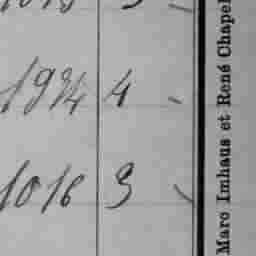 1924 4 -
1016 3 -
Marc Imhaus et René Chapel